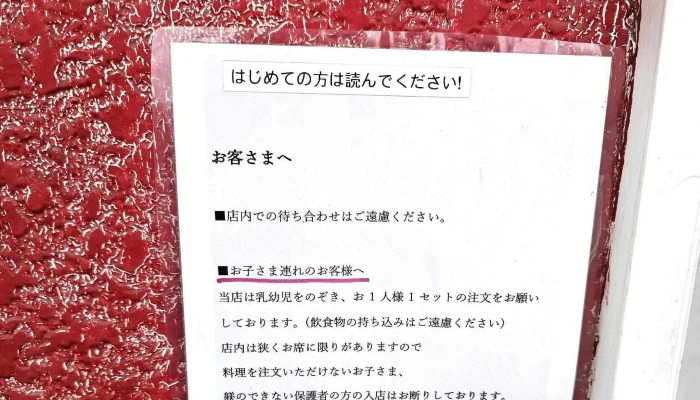 はじめての方は読んでください!
お客さまへ
■店内での待ち合わせはご遠慮ください。
■お子さま連れのお客様へ
当店は乳幼児をのぞき、お1人様1セットの注文をお願い
しております。(飲食物の持ち込みはご遠慮ください)
店内は狭くお席に限りがありますので
料理を注文いただけないお子さま、
躾のできない保護者の方の入店はお断りしております。